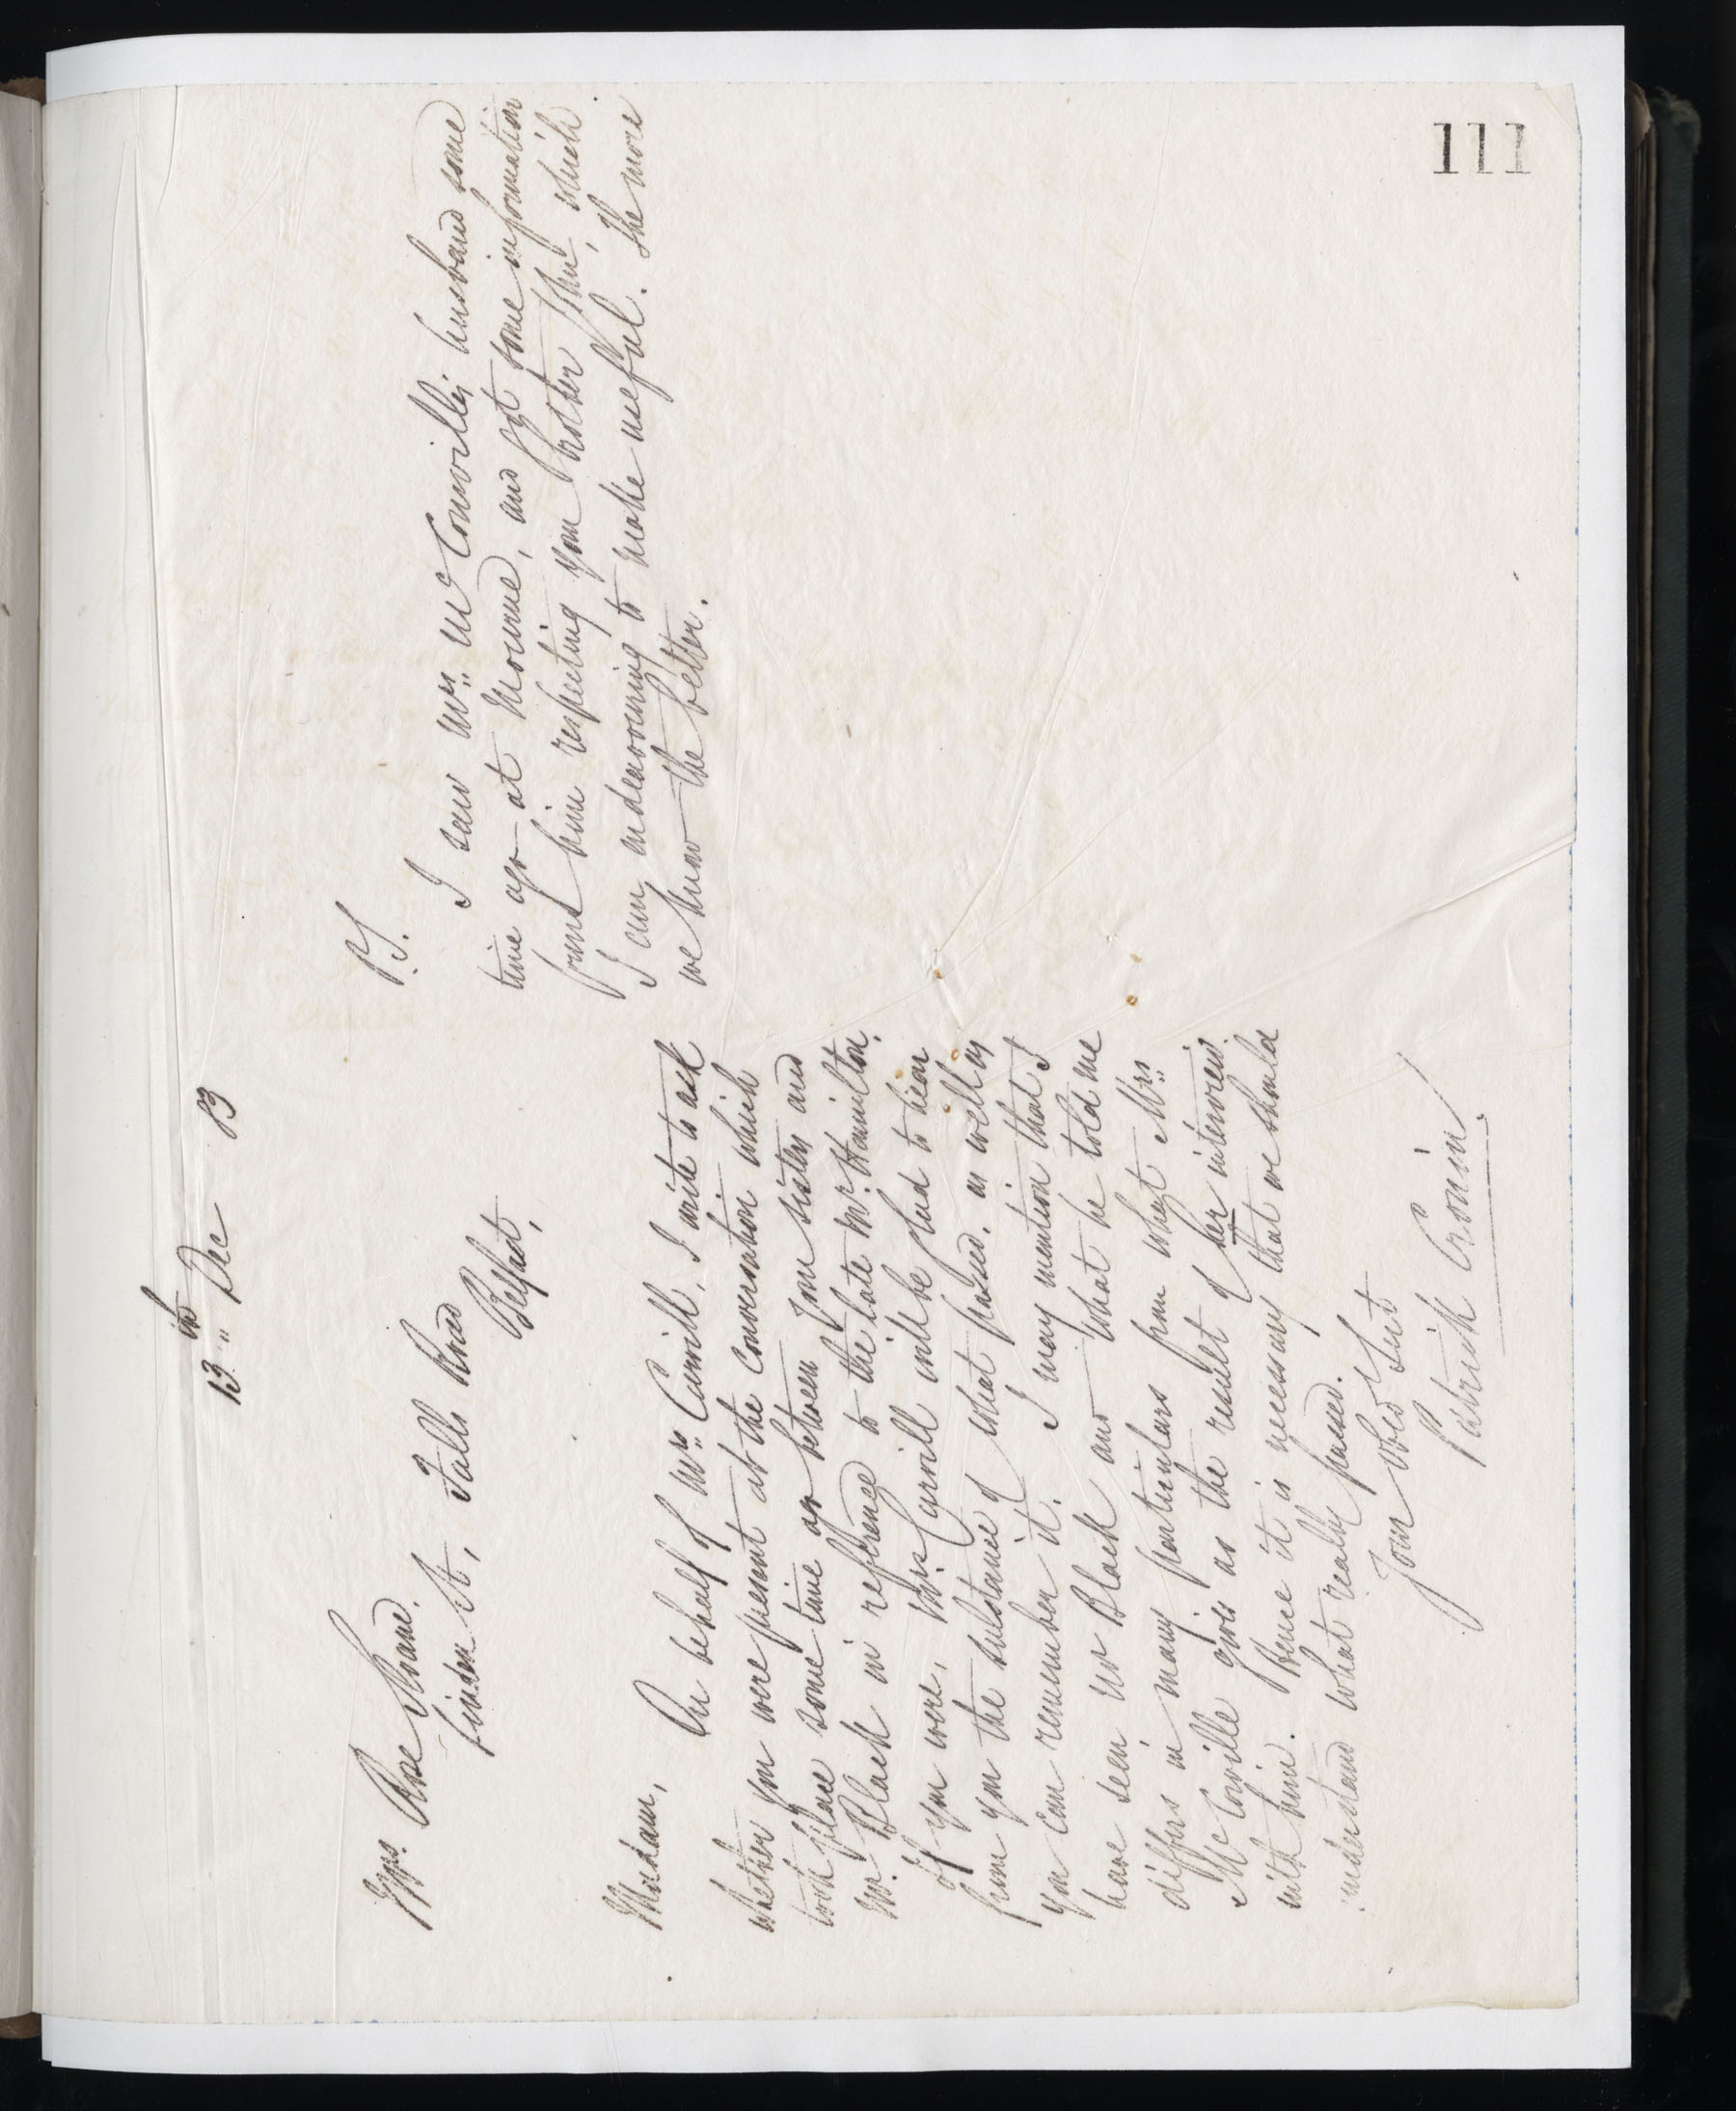 111
13th Dec 83
Miss Rose Shane.
Linden St, Falls Road
Belfast,
Madam,
On behalf of Mrs Carvill, I write to ask
whether you were present at the Conversation which
took place some time ago between your sister and
Mr Black in reference to the late Mr Hamilton.
If you were, Mrs Carvill will be glad to hear
from you the substance of what passed, as well as
you can remember it. I may mention that I
have seen Mr Black and what he told me
differs in many particulars from what Mrs
McConville gives as the result of her interview
with him. Hence it is necessary that we should
understand what really passed.
Your obed Svt
Patrick Cronin
P.S.
I saw Mrs McConville's husband some
time ago at Mourne, and got some information
from him respecting your brother John, which
I am endeavouring to make useful. The more
we know the better.